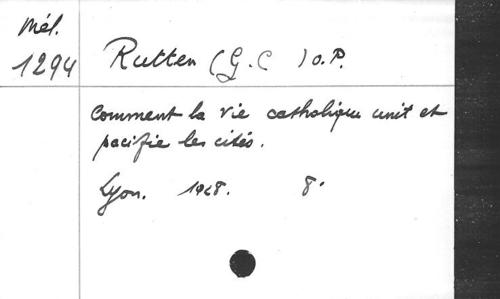 Mél.
1294 Rutten (G.C ) O.P.
Comment la vie catholique unit et
pacifie les cités.
Lyon. 1928. 8°